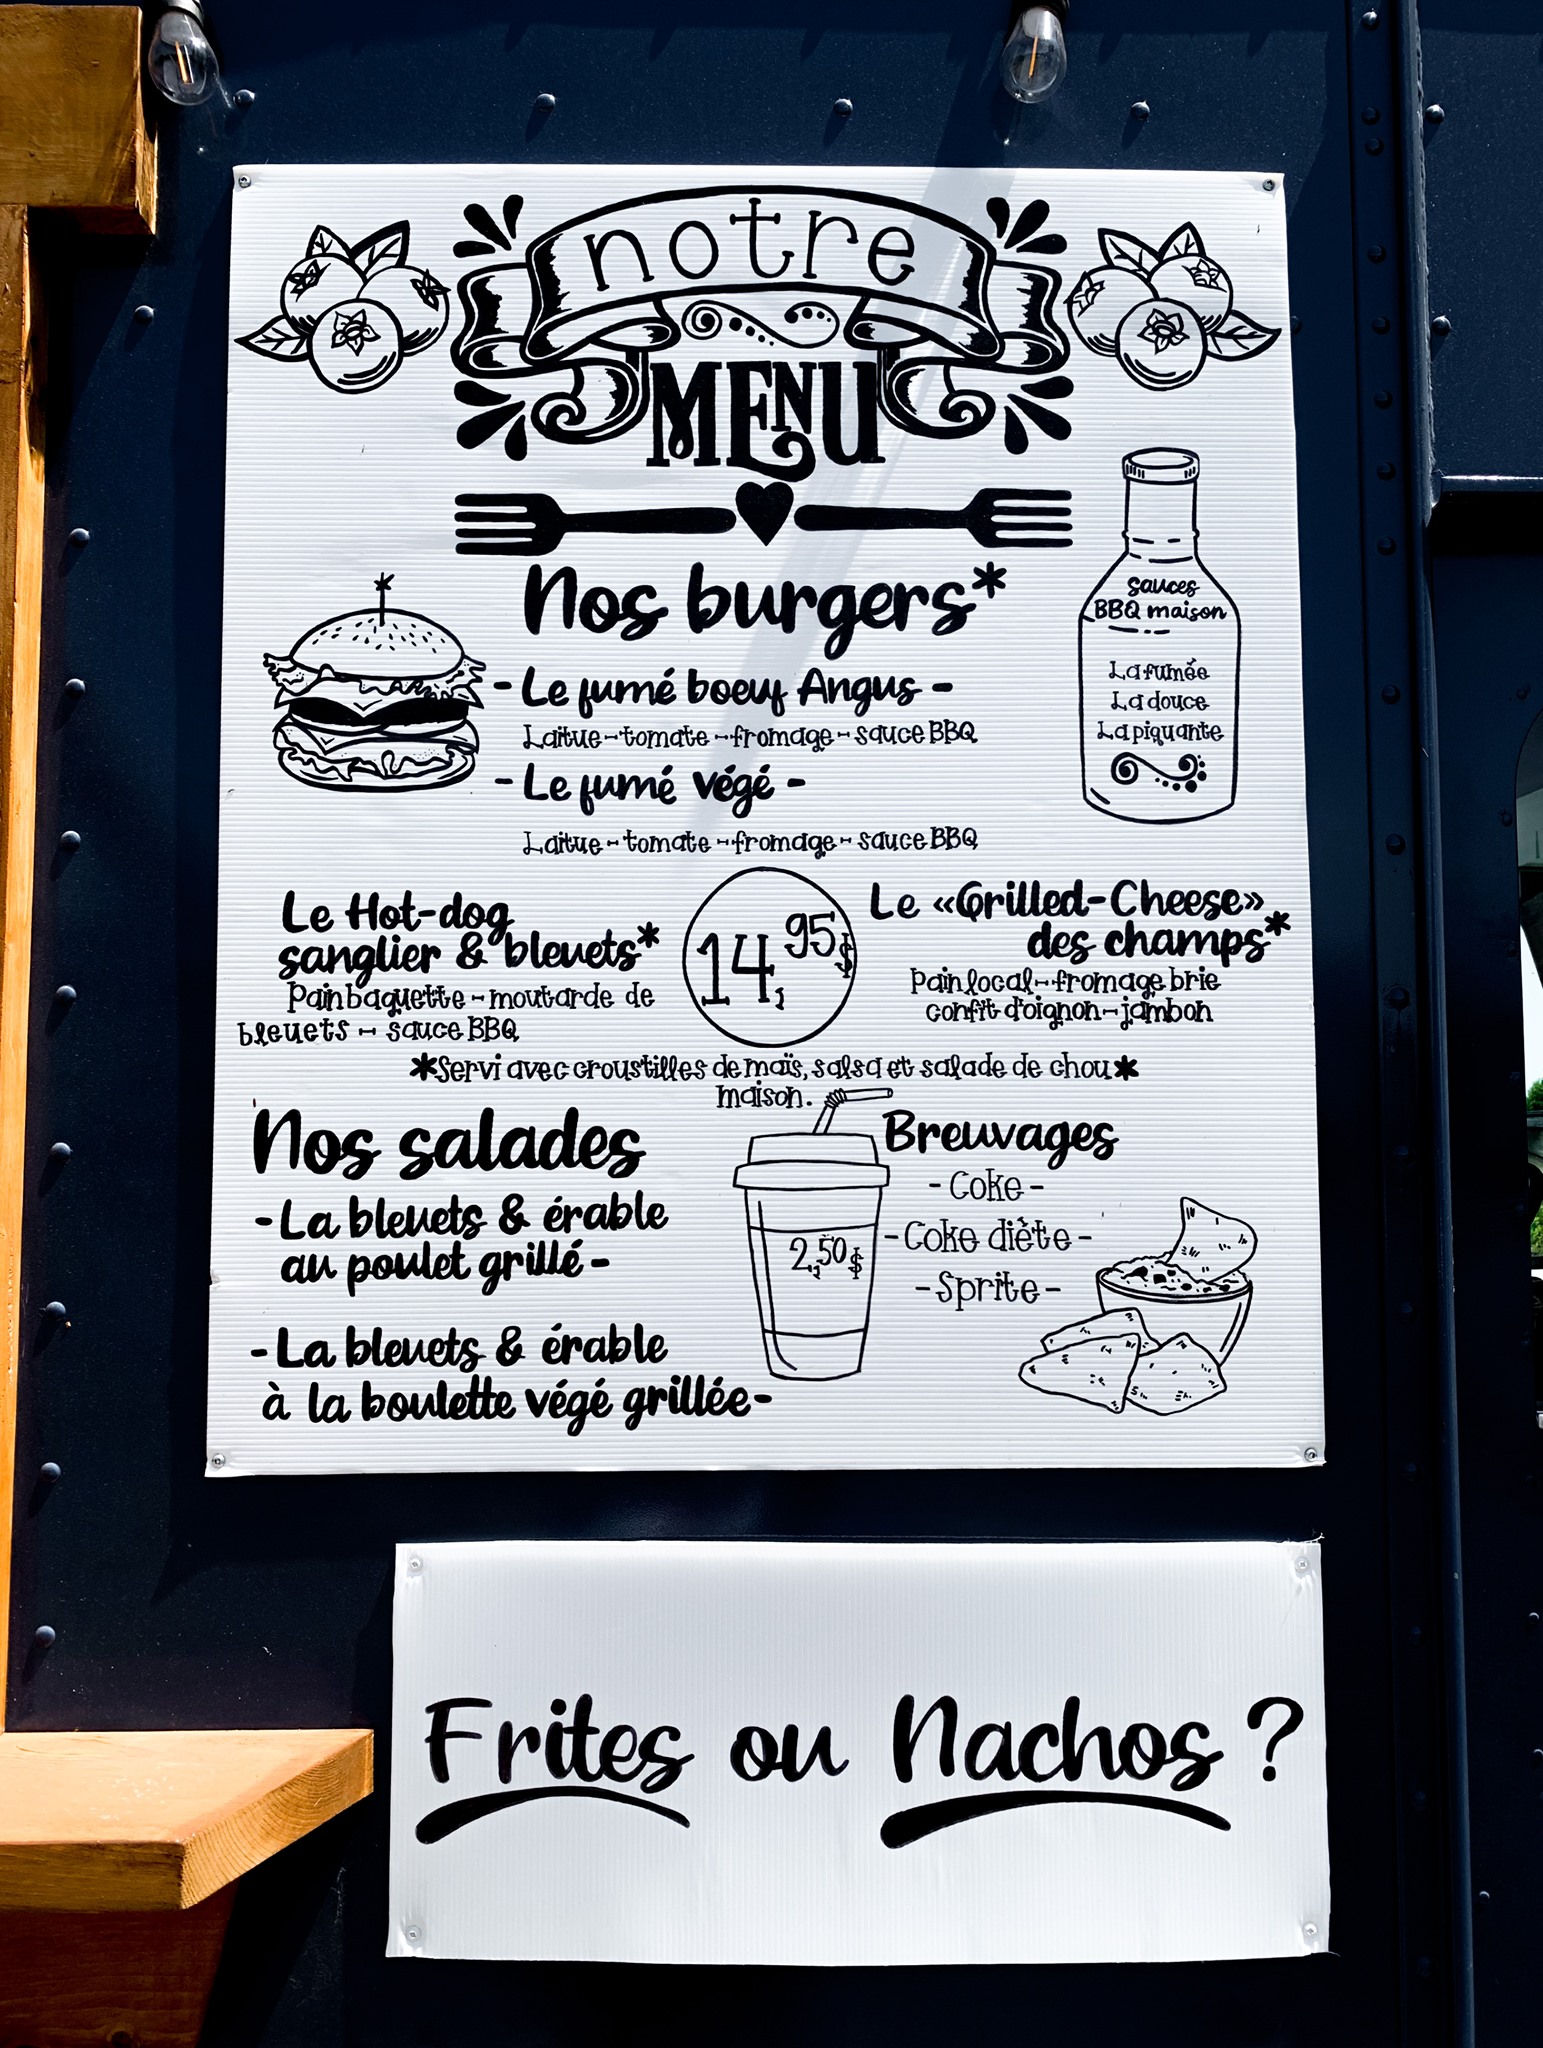 notre
MENU
Nos burgers*
- Le fumé boeuf Angus -
Laitue - tomate - fromage - sauce BBQ
- Le fumé végé -
Laitue - tomate - fromage - sauce BBQ
sauces
BBQ maison
La fumée
La douce
La piquante
Le Hot-dog
sanglier & bleuets*
Pain baguette - moutarde de
bleuets - sauce BBQ
14,95$
Le «Grilled-Cheese»
des champs*
Pain local - fromage brie
confit d'oignon - jambon
*Servi avec croustilles de maïs, salsa et salade de chou*
maison.
Nos salades
- La bleuets & érable
au poulet grillé -
- La bleuets & érable
à la boulette végé grillée -
2,50$
Breuvages
- Coke -
- Coke diète -
- Sprite -
Frites ou Nachos ?